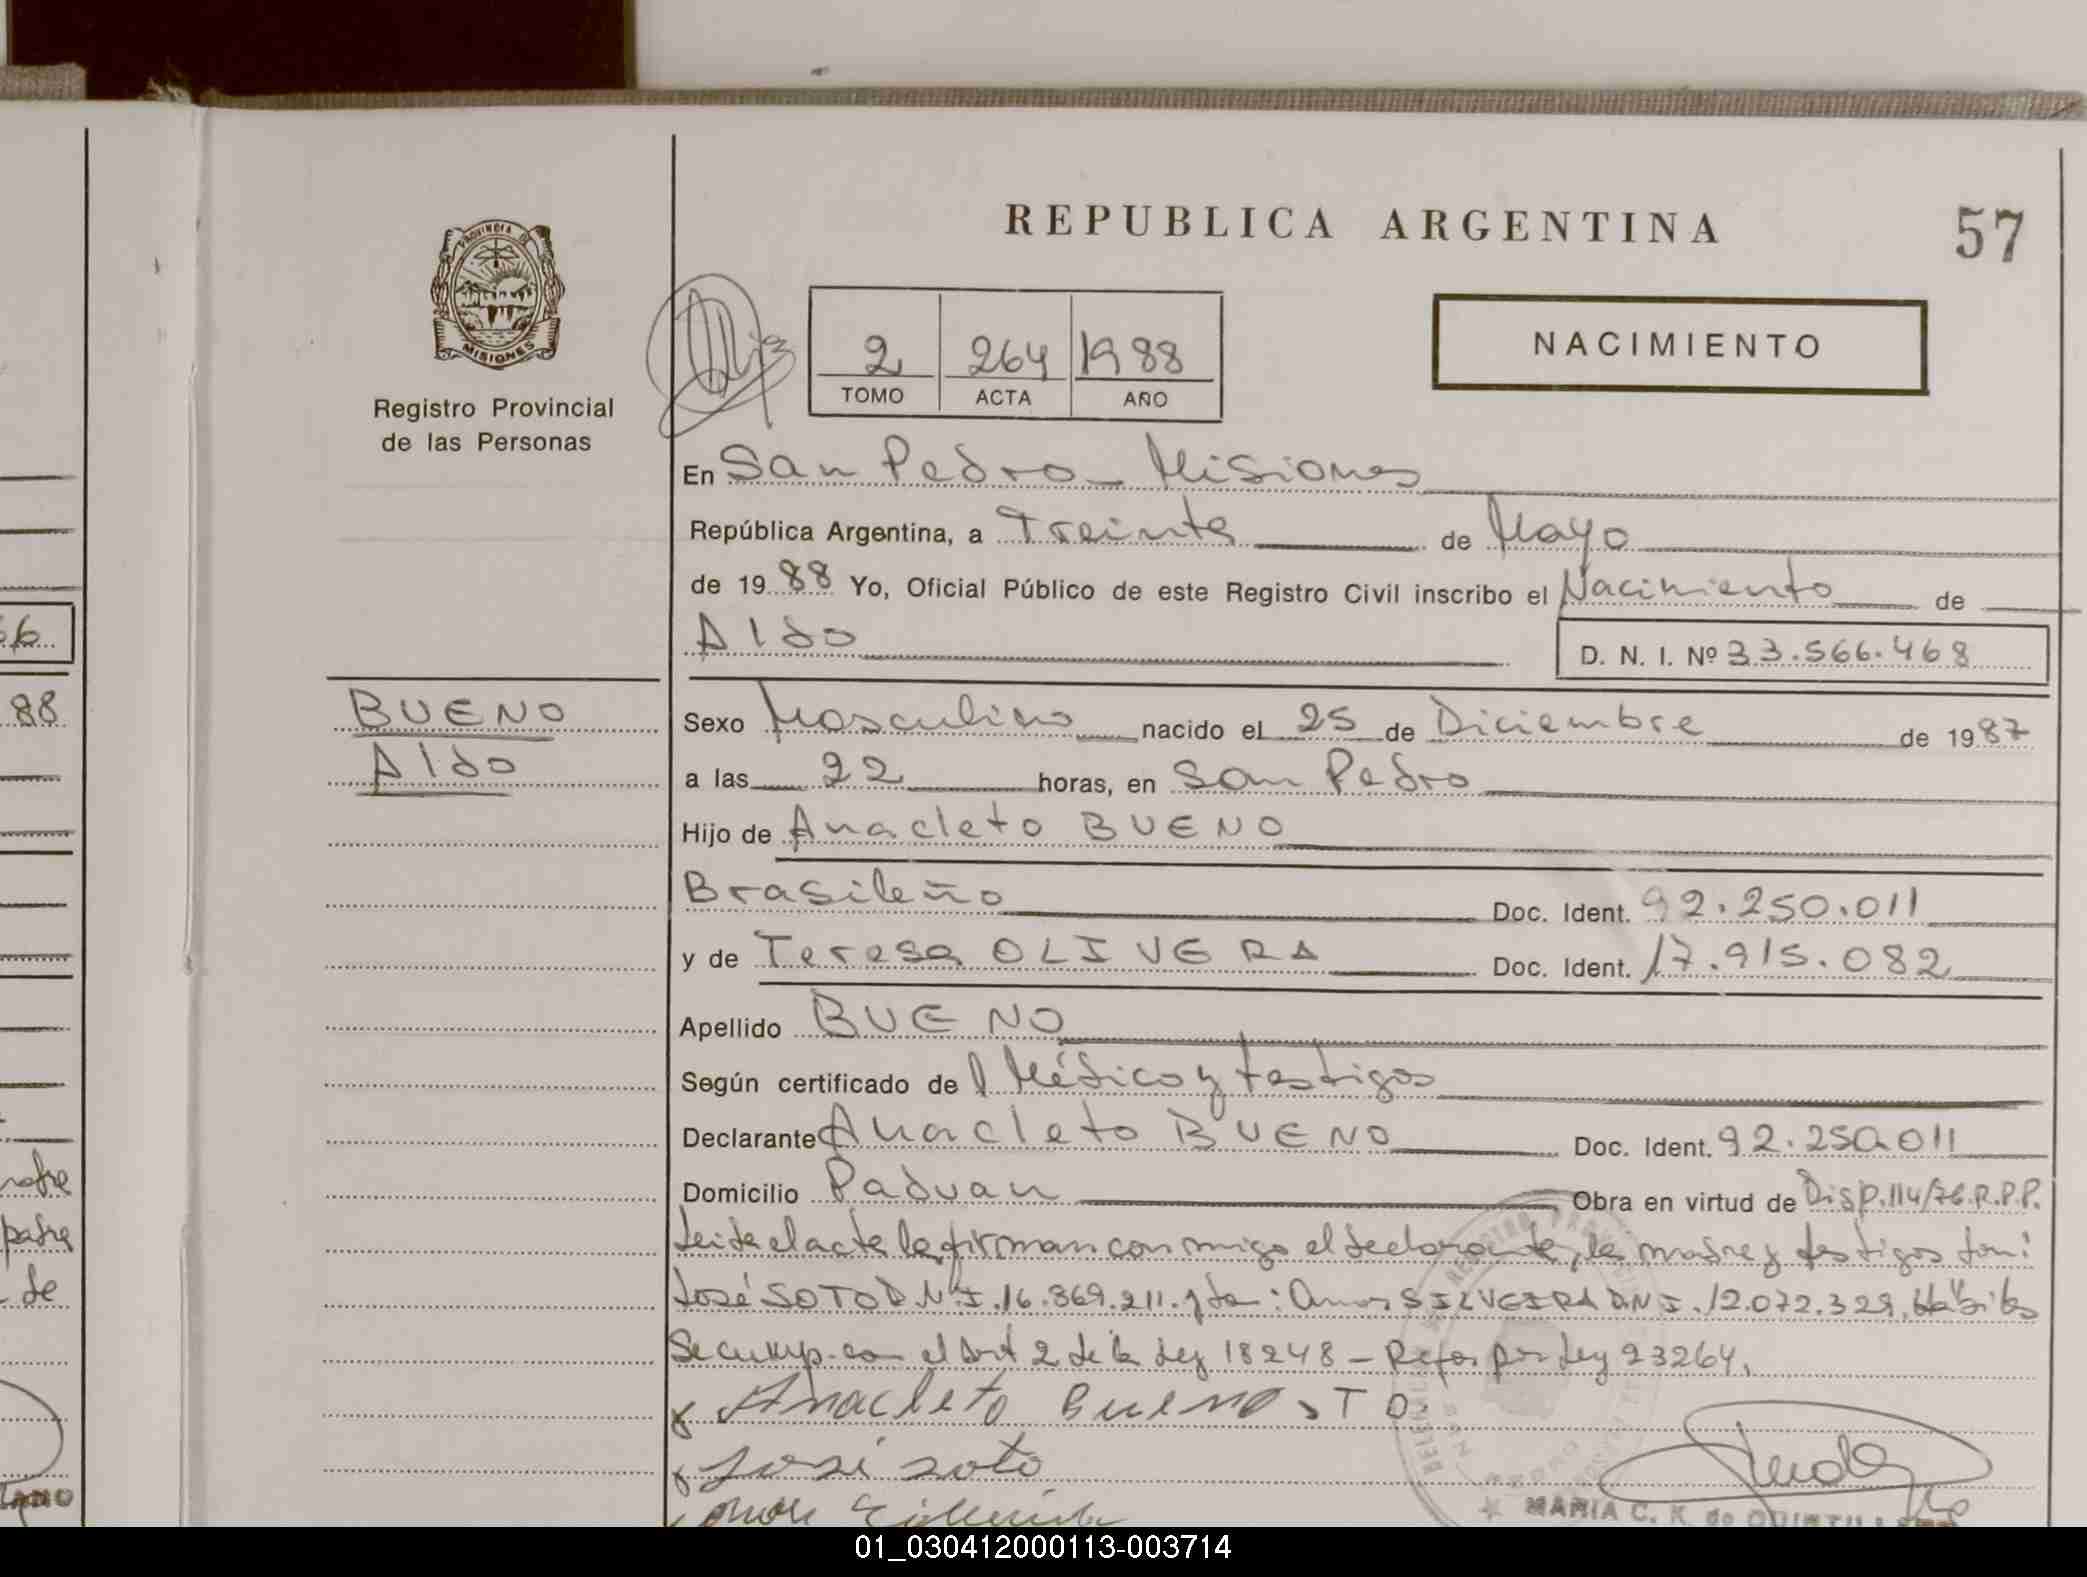 REPUBLICA ARGENTINA
57
PROVINCIA DE
MISIONES
Registro Provincial
de las Personas
2 264 1988
TOMO ACTA AÑO
NACIMIENTO
En San Pedro - Misiones
República Argentina, a Treinta de Mayo
de 19 88 Yo, Oficial Público de este Registro Civil inscribo el Nacimiento de
Aldo
D. N. I. Nº 33.566.468
BUENO
Aldo
Sexo Masculino nacido el 25 de Diciembre de 1987
a las 22 horas, en San Pedro
Hijo de Anacleto BUENO
Brasileño Doc. Ident. 92.250.011
y de Teresa OLIVERA Doc. Ident. 17.915.082
Apellido BUENO
Según certificado de Médico y testigos
Declarante Anacleto BUENO Doc. Ident. 92.250.011
Domicilio Paduan Obra en virtud de Disp.114/76.R.P.P.
Leida el acta la firman conmigo el declarante, la madre y testigos
José SOTO D.N.I.16.869.211. SILVEIRA D.N.I.12.072.329. Hábiles
Se cump. con el Art 2 de la Ley 18248 - Refor por Ley 23264.
Anacleto Bueno
José soto
MARIA C. K. de
66
88
madre
padre
de
01_030412000113-003714